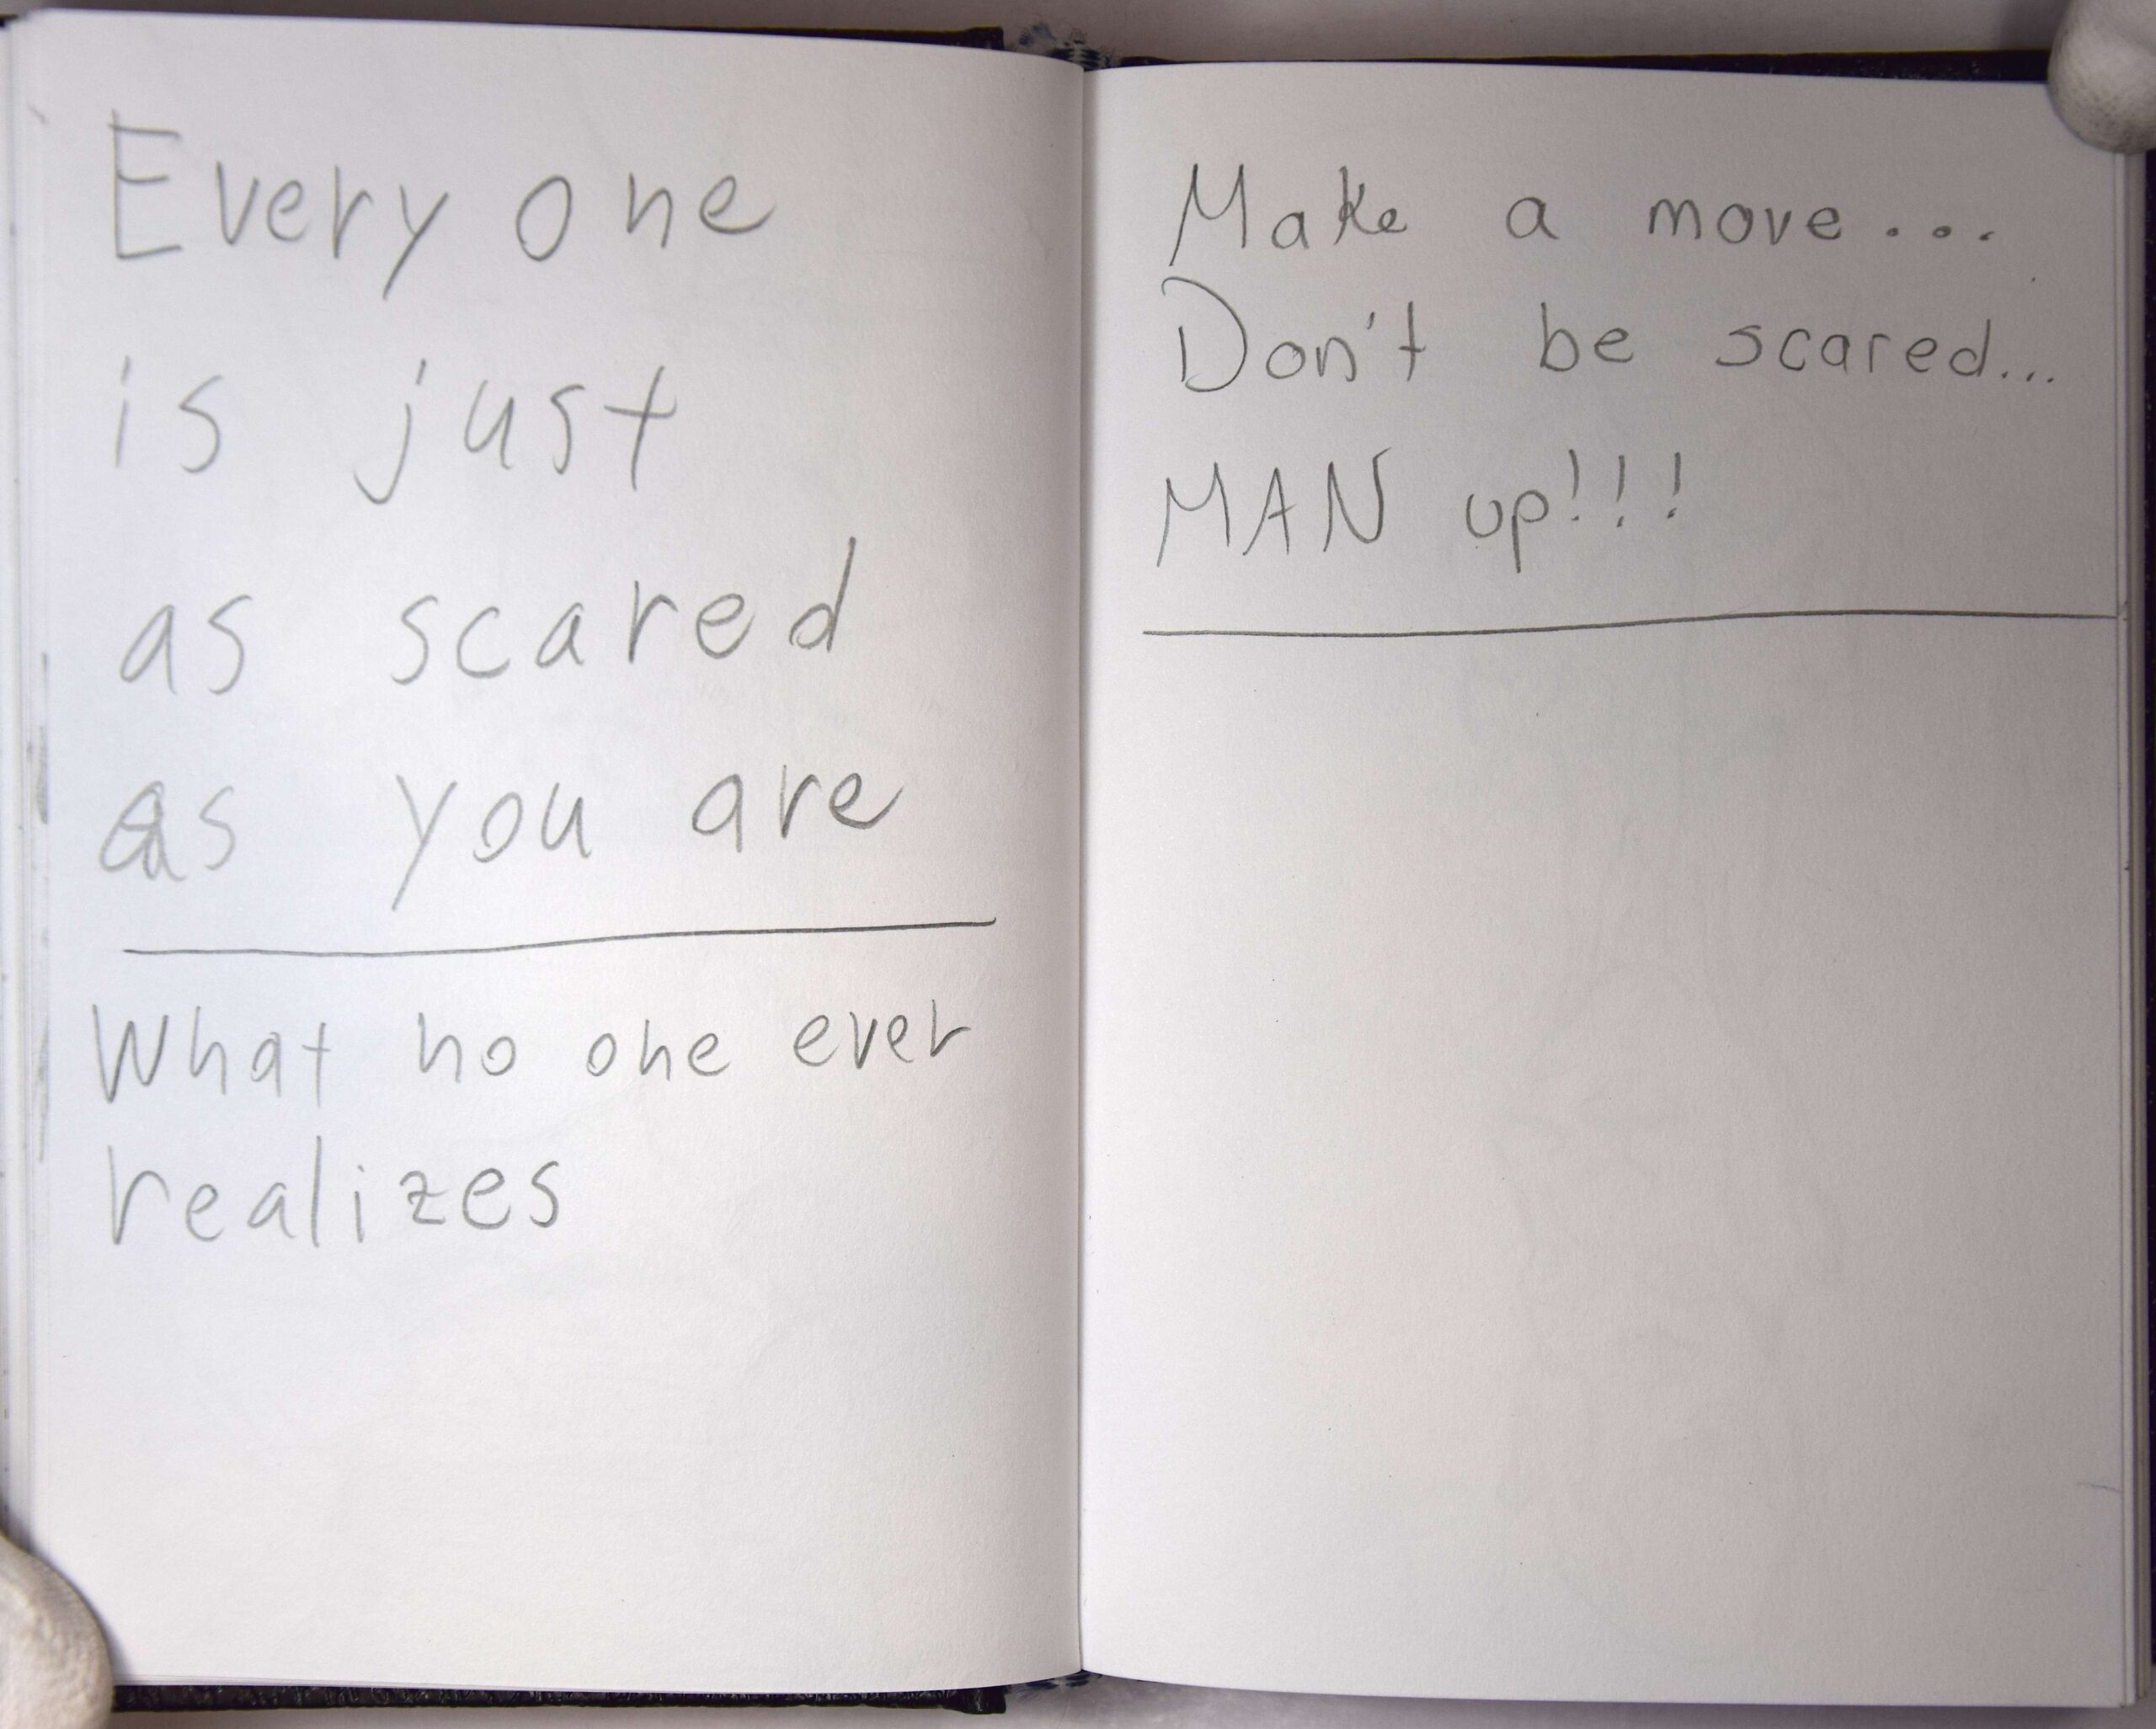 Every one
is just
as scared
as you are
What no one ever
realizes
Make a move...
Don't be scared...
MAN up!!!